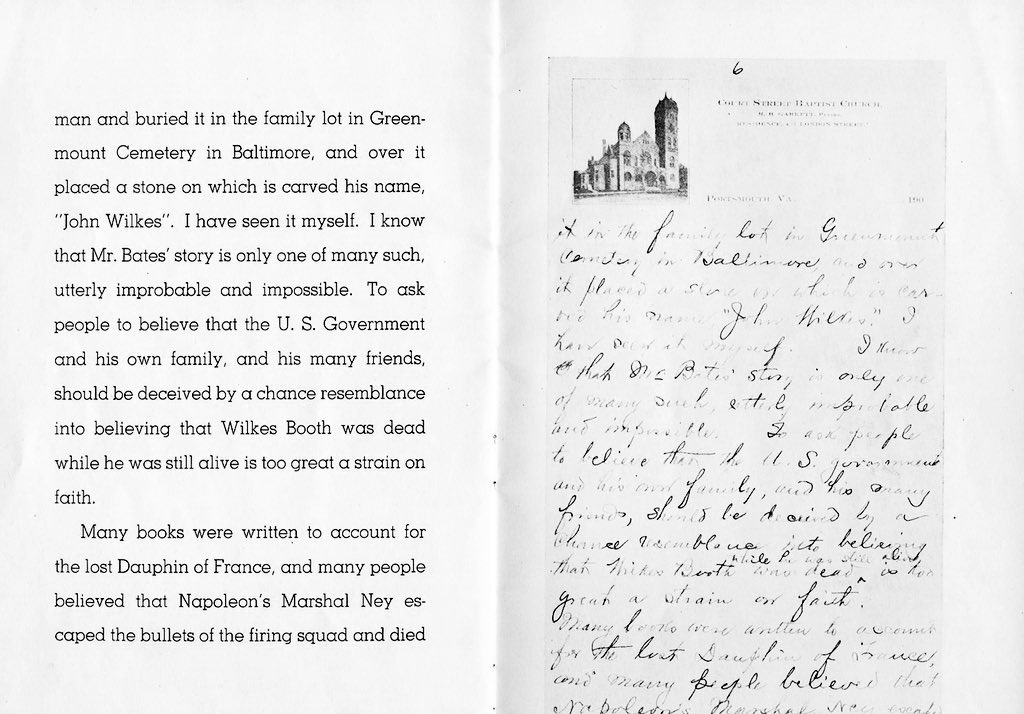 man and buried it in the family lot in Green-
mount Cemetery in Baltimore, and over it
placed a stone on which is carved his name,
"John Wilkes". I have seen it myself. I know
that Mr. Bates' story is only one of many such,
utterly improbable and impossible. To ask
people to believe that the U. S. Government
and his own family, and his many friends,
should be deceived by a chance resemblance
into believing that Wilkes Booth was dead
while he was still alive is too great a strain on
faith.
Many books were written to account for
the lost Dauphin of France, and many people
believed that Napoleon's Marshal Ney es-
caped the bullets of the firing squad and died
6
Court Street Baptist Church,
Residence, London Street
Portsmouth, Va. 190
it in the family lot in Greenmount
Cemetery in Baltimore and over
it placed a stone on which is car-
ved his name "John Wilkes". I
have seen it myself. I know
that Mr Bates' story is only one
of many such, utterly improbable
and impossible. To ask people
to believe that the U. S. government
and his own family, and his many
friends, should be deceived by a
chance resemblance into believing
while he was still alive
that Wilkes Booth was dead is too
great a strain on faith.
Many books were written to account
for the lost Dauphin of France,
and many people believed that
Napoleon's Marshal Ney escaped